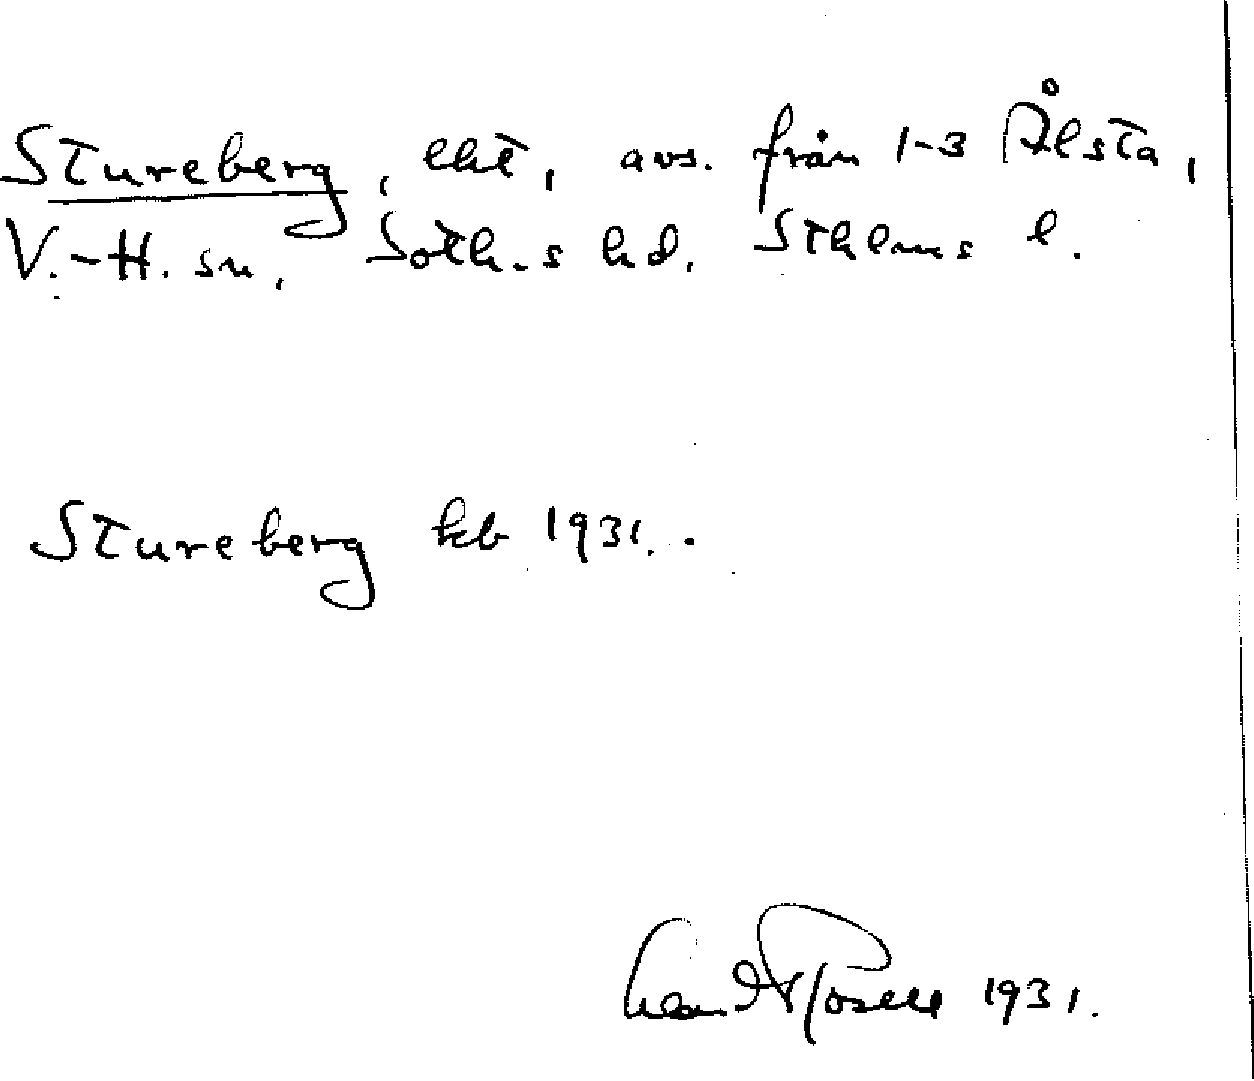 Stureberg, lht, avs. från 1-3 Ålsta,
V.-H. sn, Soth.s hd. Sthlms l.
Stureberg kb 1931.
1931.